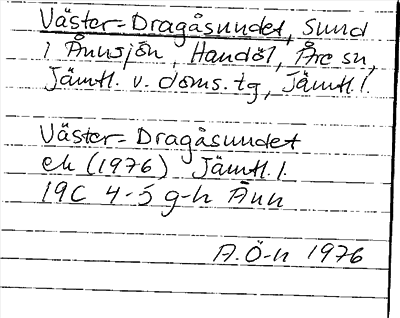 Väster-Dragåsundet, sund
i Ånnsjön, Handöl, Åre sn,
Jämtl. v. doms. tg, Jämtl. l.
Väster-Dragåsundet
ek (1976) Jämtl. l.
19C 4-5 g-h Ånn
A. Ö-n 1976